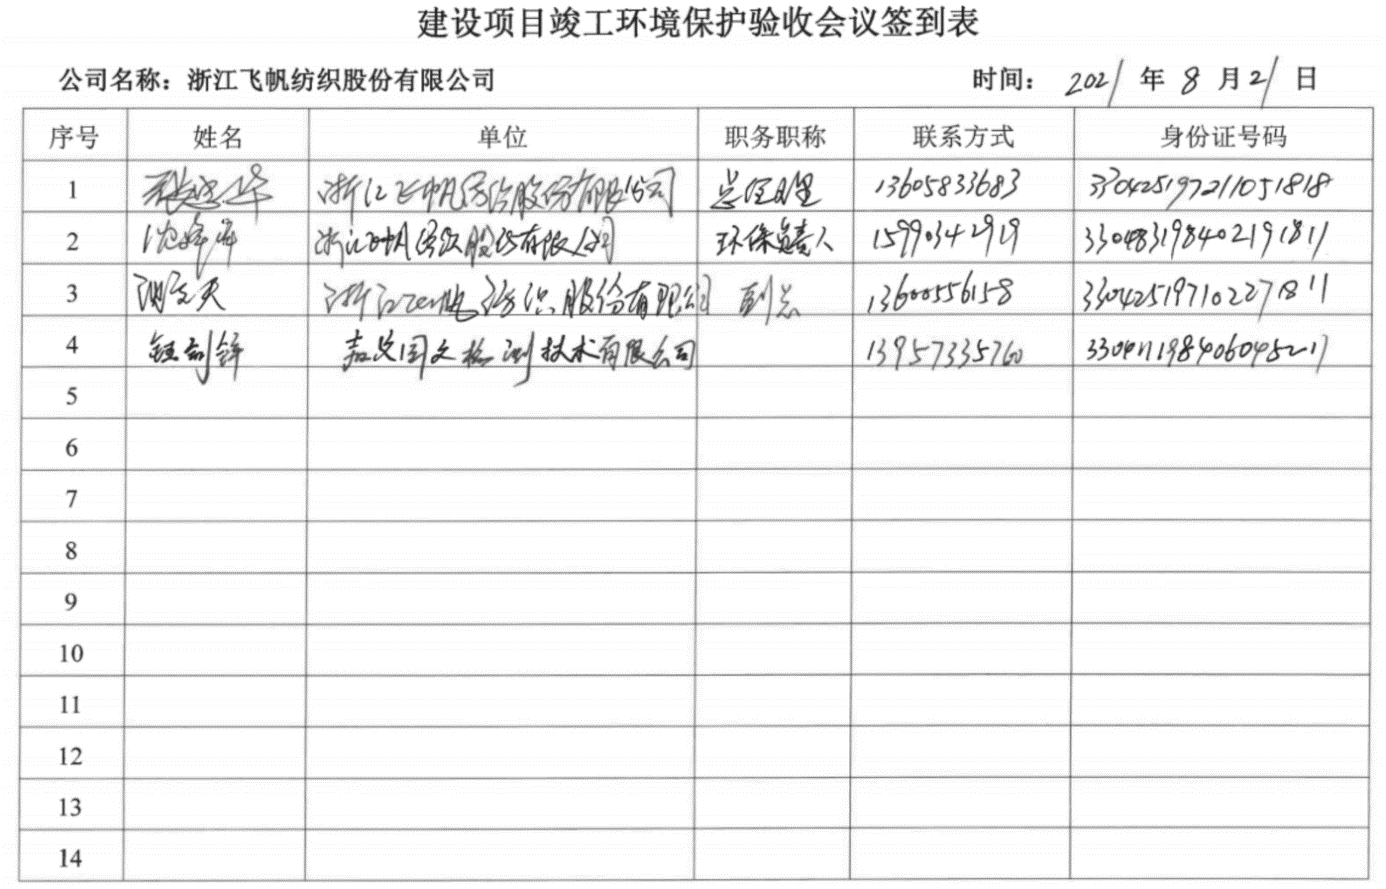 建设项目竣工环境保护验收会议签到表
公司名称：浙江飞帆纺织股份有限公司 时间： 2021 年 8 月 21 日
序号 姓名 单位 职务职称 联系方式 身份证号码
1 浙江飞帆纺织股份有限公司 总经理 13605833683 330425197211051818
2 浙江飞帆纺织股份有限公司 环保负责人 15990342919 330483198402191811
3 浙江飞帆纺织股份有限公司 副总 13600556158 330425197102271811
4 检测技术有限公司 13957335760
5
6
7
8
9
10
11
12
13
14